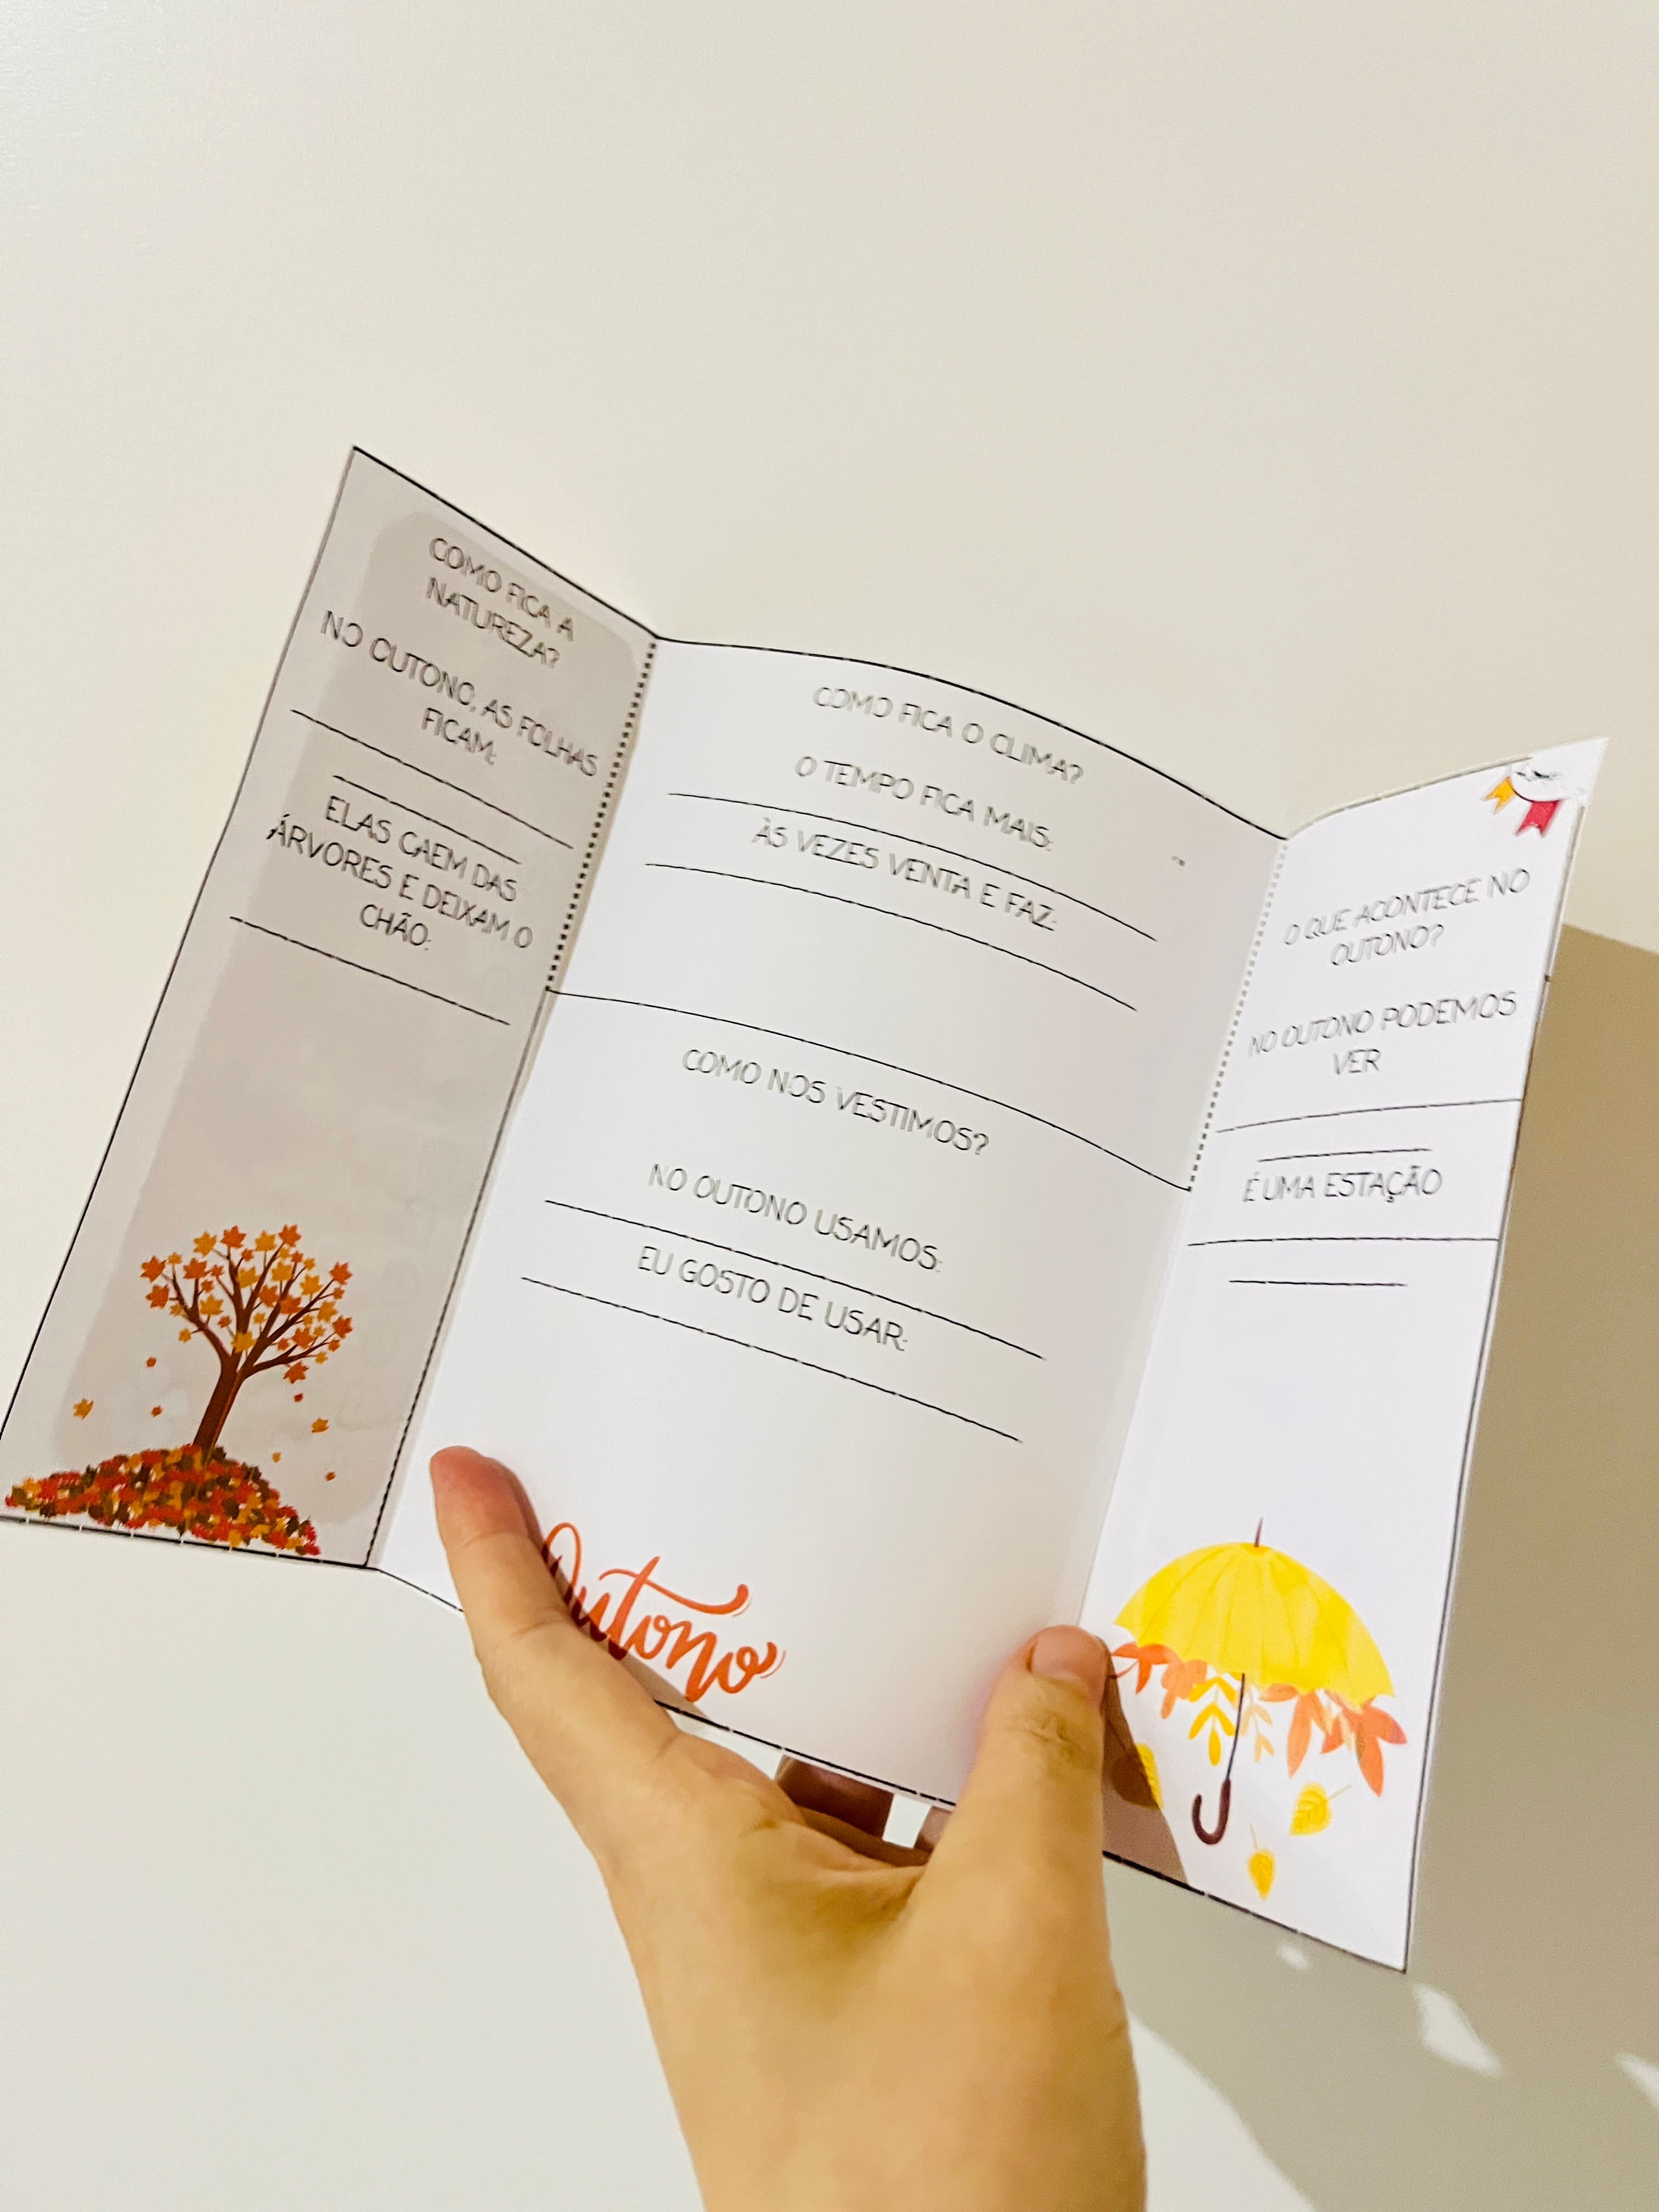 COMO FICA A
NATUREZA?
NO OUTONO, AS FOLHAS
FICAM:
ELAS CAEM DAS
ÁRVORES E DEIXAM O
CHÃO:
COMO FICA O CLIMA?
O TEMPO FICA MAIS:
ÀS VEZES VENTA E FAZ:
COMO NOS VESTIMOS?
NO OUTONO USAMOS:
EU GOSTO DE USAR:
Outono
O QUE ACONTECE NO
OUTONO?
NO OUTONO PODEMOS
VER
É UMA ESTAÇÃO